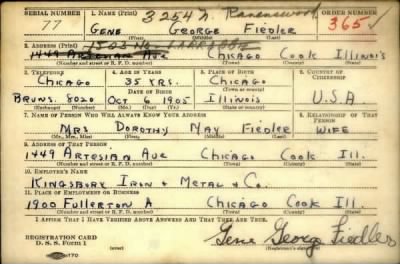 SERIAL NUMBER 1. NAME (Print) ORDER NUMBER
3254 N Ravenswood
77 GENE GEORGE FIEDLER 365
(First) (Middle) (Last)
2. ADDRESS (Print)
1503 No
1449 ARTESIAN AVE CHICAGO COOK ILLINOIS
(Number and street or R. F. D. number) (Town) (County) (State)
3. TELEPHONE 4. AGE IN YEARS 5. PLACE OF BIRTH 6. COUNTRY OF CITIZENSHIP
CHICAGO 35 YRS. CHICAGO
DATE OF BIRTH (Town or county)
BRUNS. 5020 OCT 6 1905 ILLINOIS U.S.A.
(Exchange) (Number) (Mo.) (Day) (Yr.) (State or country)
7. NAME OF PERSON WHO WILL ALWAYS KNOW YOUR ADDRESS 8. RELATIONSHIP OF THAT PERSON
MRS DOROTHY MAY FIEDLER WIFE
(Mr., Mrs., Miss) (First) (Middle) (Last)
9. ADDRESS OF THAT PERSON
1449 ARTESIAN AVE CHICAGO COOK ILL.
(Number and street or R. F. D. number) (Town) (County) (State)
10. EMPLOYER'S NAME
KINGSBURY IRON & METAL & CO.
11. PLACE OF EMPLOYMENT OR BUSINESS
1900 FULLERTON A CHICAGO COOK ILL.
(Number and street or R. F. D. number) (Town) (County) (State)
I AFFIRM THAT I HAVE VERIFIED ABOVE ANSWERS AND THAT THEY ARE TRUE.
REGISTRATION CARD
D. S. S. Form 1 (over) Gene George Fiedler
(Registrant's signature)